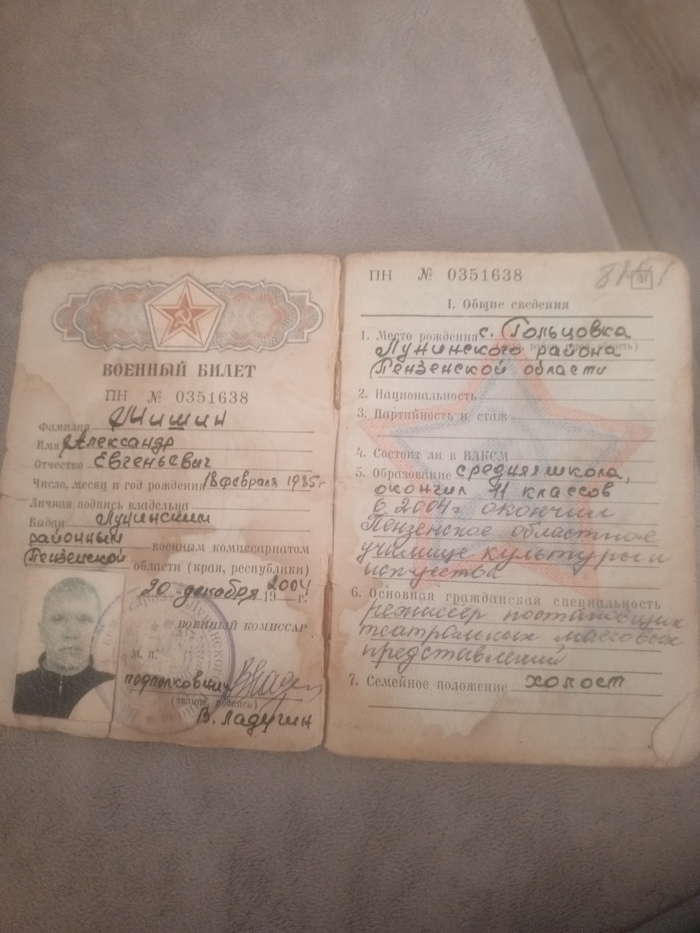 ВОЕННЫЙ БИЛЕТ
ПН № 0351638
Фамилия Шишин
Имя Александр
Отчество Евгеньевич
Число, месяц и год рождения 18 февраля 1985г
Личная подпись владельца
Выдан Лунинским
районным военным комиссариатом
Пензенской области (края, республики)
20 декабря 2004 19 — г.
ВОЕННЫЙ КОМИССАР
М. П.
подполковник
(звание, подпись)
В. Ладугин
ПН № 0351638
I. Общие сведения
1. Место рождения с. Гольцовка
Лунинского района
Пензенской области
2. Национальность
3. Партийность и стаж
4. Состоит ли в ВЛКСМ
5. Образование средняя школа,
окончил 11 классов
В 2004г окончил
Пензенское областное
училище культуры и
искусства
6. Основная гражданская специальность
режиссер постановщик
театральных массовых
представлений
7. Семейное положение холост